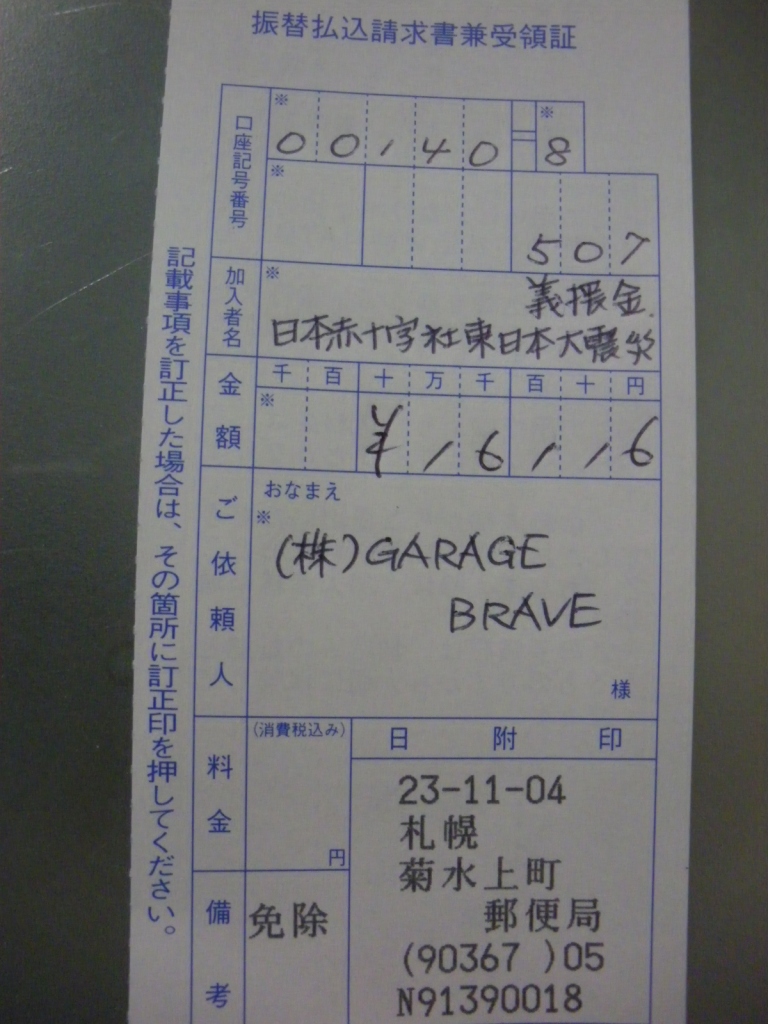 振替払込請求書兼受領証
口座記号番号
※
※
00140=8
※
507
加入者名
※
義援金
日本赤十字社東日本大震災
金額
千百十万千百十円
※
¥16116
ご依頼人
おなまえ
※
(株)GARAGE
BRAVE
様
料金
(消費税込み)
円
日附印
23-11-04
札幌
菊水上町
郵便局
(90367 )05
N91390018
備考
免除
記載事項を訂正した場合は、その箇所に訂正印を押してください。